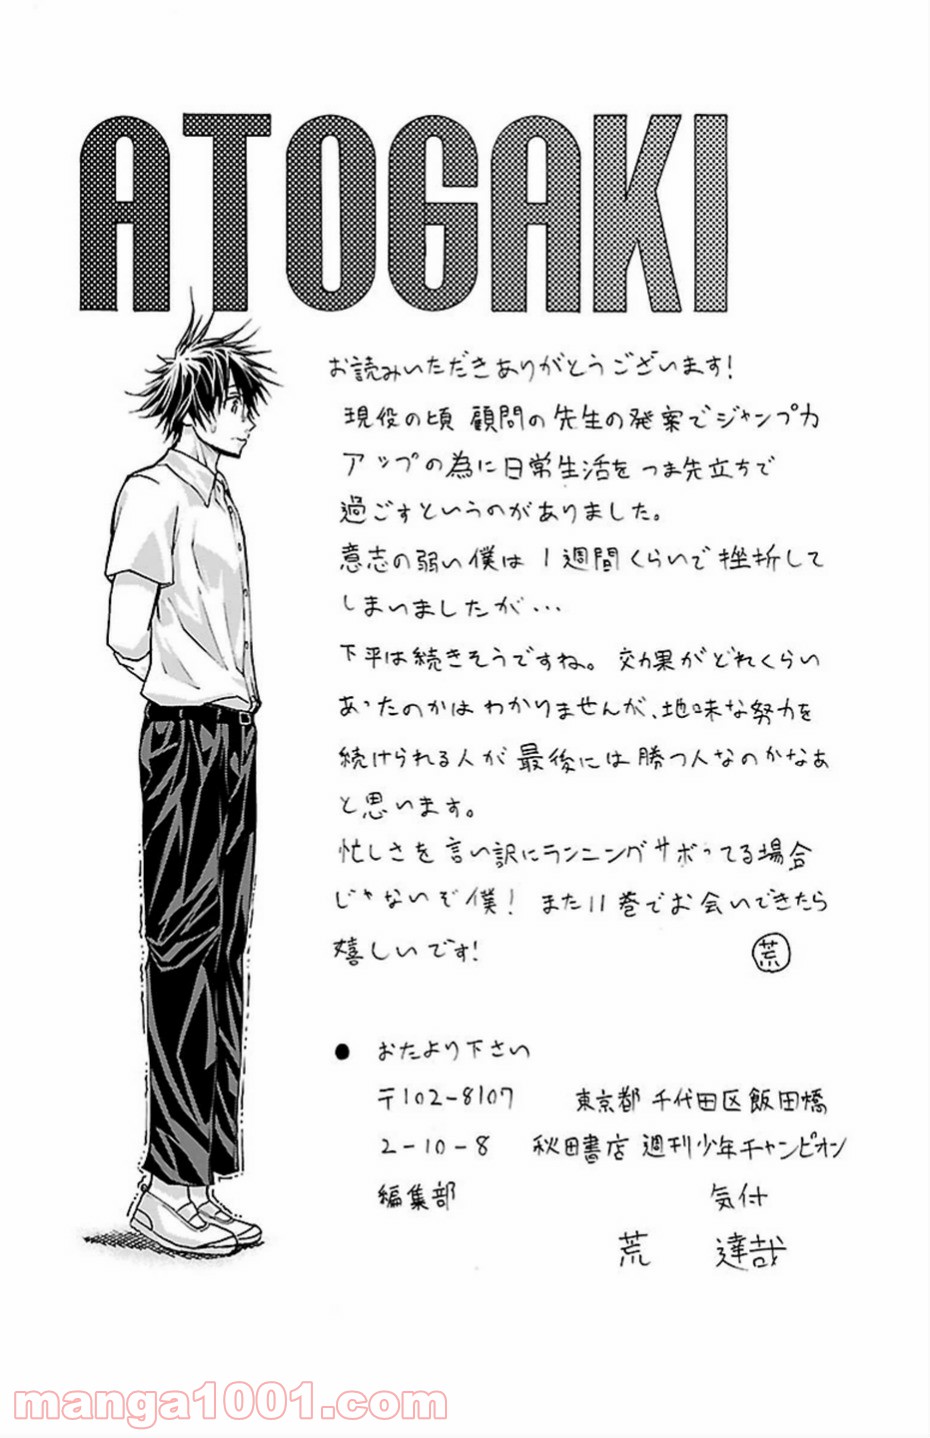 ATOGAKI
お読みいただきありがとうございます!
現役の頃 顧問の先生の発案でジャンプ力
アップの為に日常生活をつま先立ちで
過ごすというのがありました。
意志の弱い僕は1週間くらいで挫折して
しまいましたが…
下平は続きそうですね。効果がどれくらい
あったのかはわかりませんが、地味な努力を
続けられる人が最後には勝つ人なのかなぁ
と思います。
忙しさを言い訳にランニングサボってる場合
じゃないぞ僕! また11巻でお会いできたら
嬉しいです!
荒
● おたより下さい
〒102-8107 東京都千代田区飯田橋
2-10-8 秋田書店 週刊少年チャンピオン
編集部 気付
荒 達哉
manga1001.com